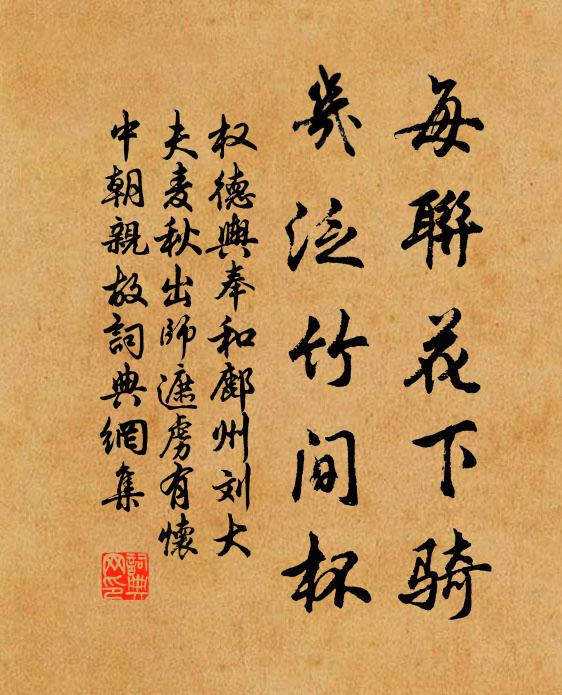 每聯花下骑
幾泛竹间杯
权德輿奉和鄜州刘大
夫麦秋出師遮虏有懷
中朝親故詞典網集
詞典
网印